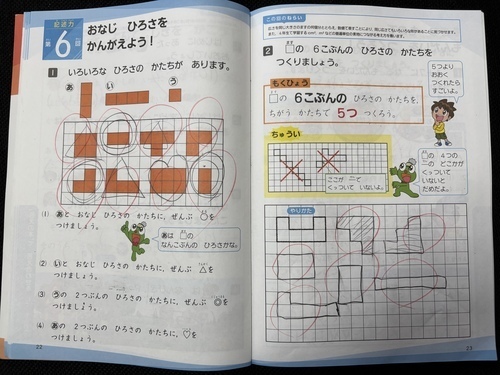 記述力
第6回
おなじ ひろさを
かんがえよう!
1 いろいろな ひろさの かたちが あります。
あ い う
(1) あと おなじ ひろさの かたちに、ぜんぶ ○を
つけましょう。
あは □の
なんこぶんの ひろさかな。
(2) いと おなじ ひろさの かたちに、ぜんぶ △を
つけましょう。
(3) うの 2つぶんの ひろさの かたちに、ぜんぶ ◎を
つけましょう。
(4) あの 2つぶんの ひろさの かたちに、♡を
つけましょう。
22
この回のねらい
2 □の 6こぶんの ひろさの かたちを
つくりましょう。
もくひょう
□の 6こぶんの ひろさの かたちを、
ちがう かたちで 5つ つくろう。
5つより
おおく
つくれたら
すごいよ。
ちゅうい
ここが 二で
くっついて いないよ。
□の 4つの
二の どこかが
くっついて
いないと
だめだよ。
やりかた
23